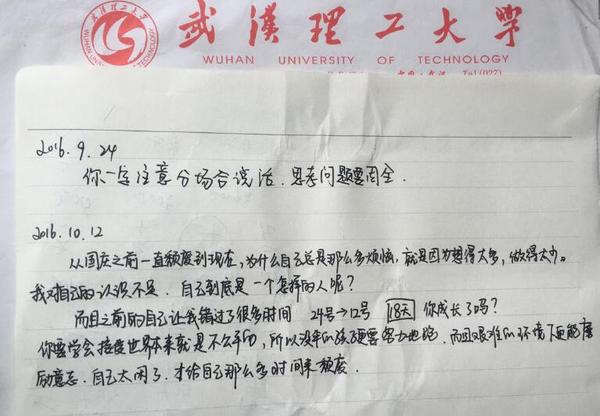 武汉理工大学
WUHAN UNIVERSITY OF TECHNOLOGY
Tel(027)
2016.9.24
你一定注意分场合说话．思考问题要周全．
2016.10.12
从国庆之前一直颓废到现在，为什么自己总是那么多烦恼，就是因为想得太多，做得太少。
我对自己的认识不足．自己到底是一个怎样的人呢？
而且之前的自己让我错过了很多时间 24号→12号 18天 你成长了吗？
你要学会接受世界本来就是不公平的，所以没伞的孩子要努力地跑．而且艰难的环境下更能磨
励意志．自己太闲了．才给自己那么多时间来颓废．